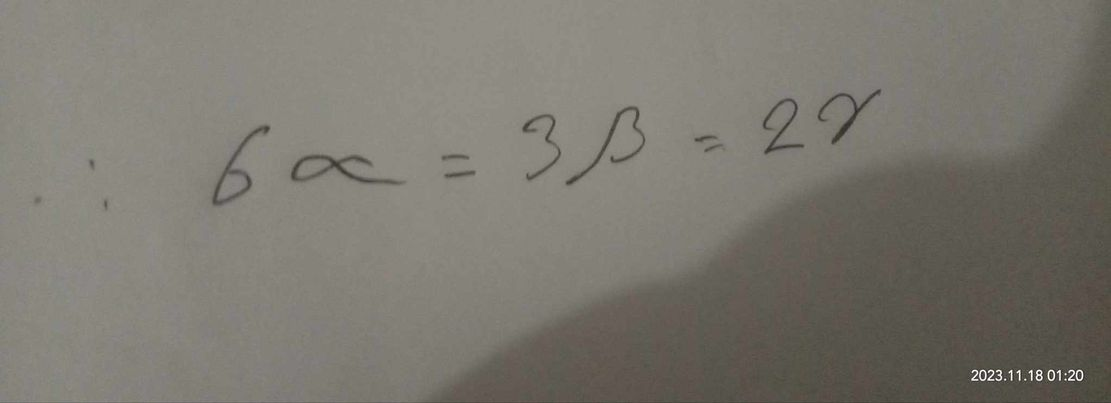 ∴ 6α = 3β = 2γ
2023.11.18 01:20